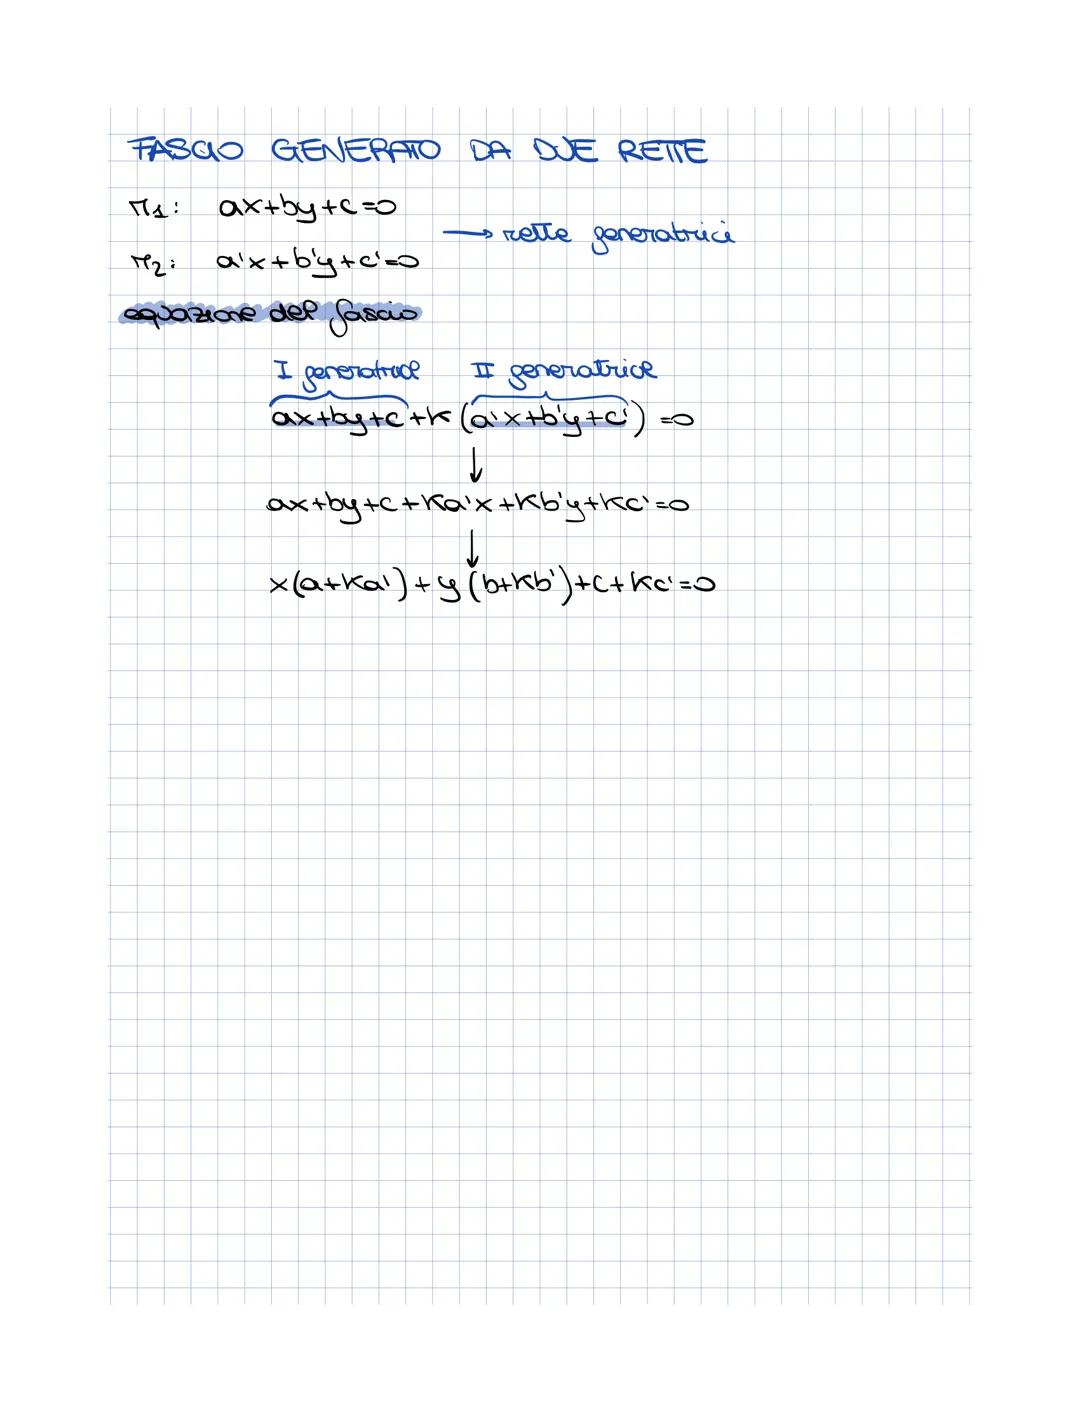 FASCIO GENERATO DA DUE RETTE
r1: ax+by+c=0
→ rette generatrici
r2: a'x+b'y+c'=0
equazione del fascio
I generatrice II generatrice
ax+by+c+K(a'x+b'y+c')=0
↓
ax+by+c+Ka'x+Kb'y+Kc'=0
↓
x(a+Ka')+y(b+Kb')+c+Kc'=0